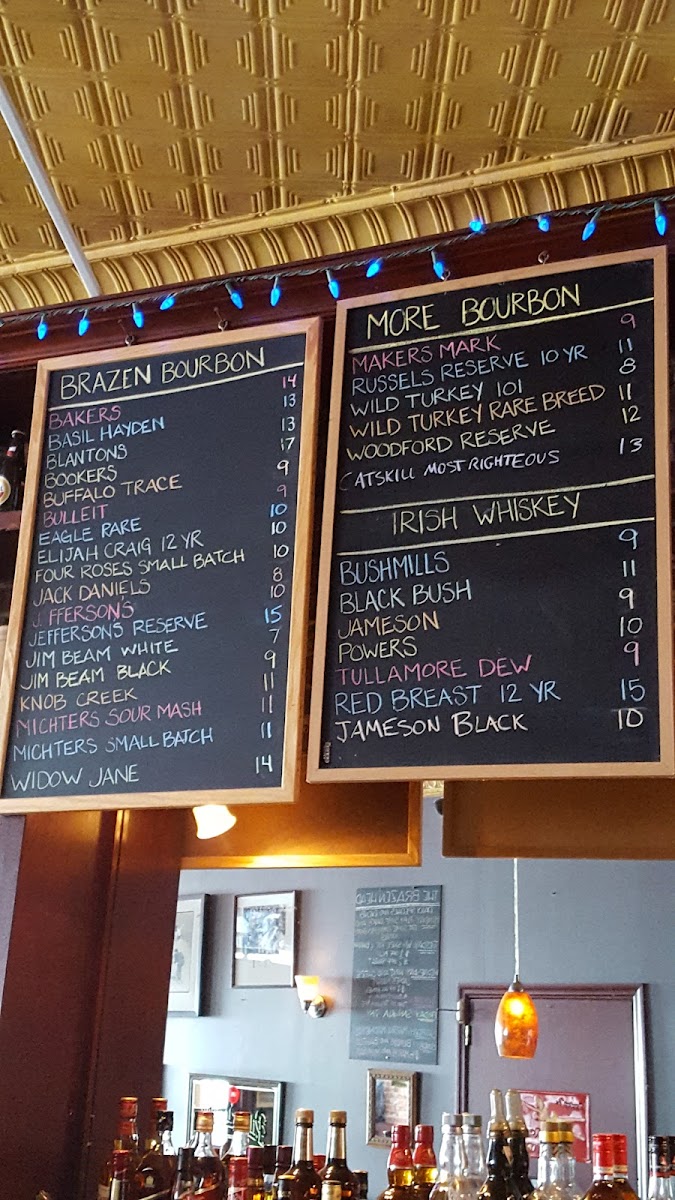 BRAZEN BOURBON
BAKERS 14
BASIL HAYDEN 13
BLANTONS 13
BOOKERS 17
BUFFALO TRACE 9
BULLEIT 9
EAGLE RARE 10
ELIJAH CRAIG 12 YR 10
FOUR ROSES SMALL BATCH 10
JACK DANIELS 8
J. FFERSONS 10
JEFFERSONS RESERVE 15
JIM BEAM WHITE 7
JIM BEAM BLACK 9
KNOB CREEK 11
MICHTERS SOUR MASH 11
MICHTERS SMALL BATCH 11
WIDOW JANE 14
MORE BOURBON
MAKERS MARK 9
RUSSELS RESERVE 10 YR 11
WILD TURKEY 101 8
WILD TURKEY RARE BREED 11
WOODFORD RESERVE 12
CATSKILL MOST RIGHTEOUS 13
IRISH WHISKEY
BUSHMILLS 9
BLACK BUSH 11
JAMESON 9
POWERS 10
TULLAMORE DEW 9
RED BREAST 12 YR 15
JAMESON BLACK 10
THE BRAZENHEAD